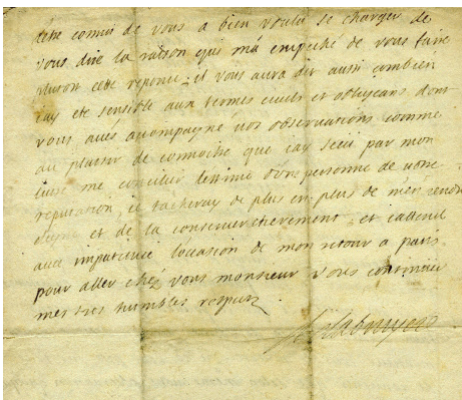 destre connu de vous a bien voulu se charger de
vous dire la raison que ma empeché de vous faire
plutost cette reponce, il vous aura dit aussi combien
iay eté sensible aux termes civils et obligeans dont
vous avés acompagné vos observations comme
au plaisir de connoitre que iay sceu par mon
me concilier lestime dune personne de votre
reputation, ie tacheray de plus en plus de men rendre
digne et de la conserver cherement, et iattend
avec impatience loccasion de mon retour a paris
pour aller chez vous monsieur vous continuer
mes tres humbles respects.